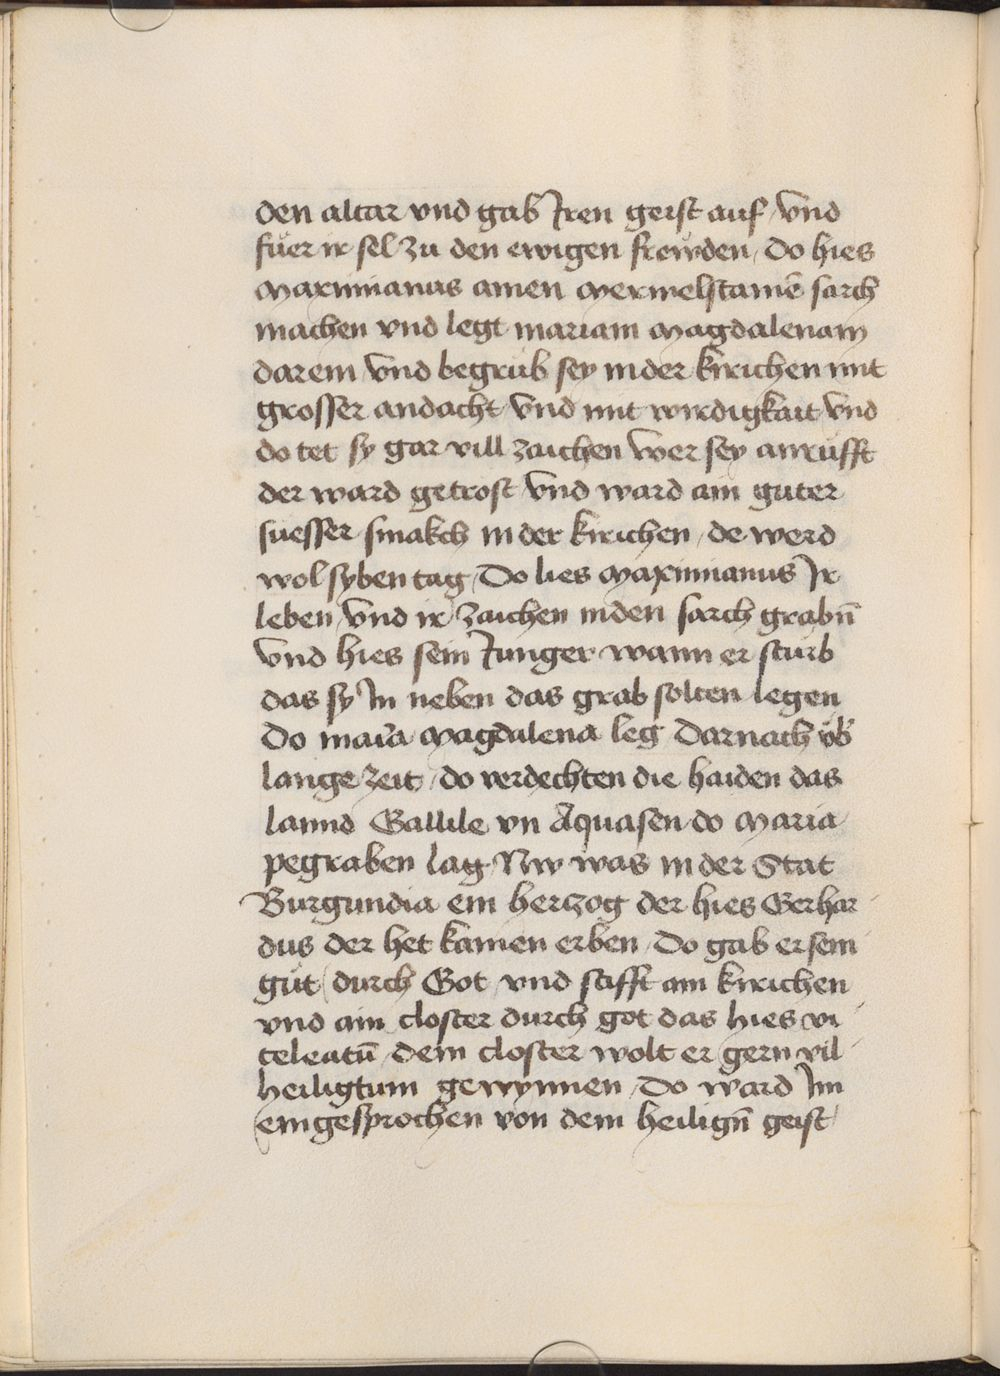 den altar vnd gab Iren geist auf / vnd
fůer ir sel zu den ewigen frewden / Do hies
Maximianus ainen Mermelstainē sarch
machen vnd legt mariam Magdalenam
darein / vnd begrub sey in der kirichen mit
grosser andacht / vnd mit wirdigkait / vnd
do tet sy gar vill zaichen wer sey anrufft
der ward getrost / vnd ward ain guter
suesser smakch in der kirichen / de werd
wol syben tag / Do lies Maximianus Ir
leben / vnd ir zaichen in den sarch grabn̄
vnd hies sein Iunger wann er sturb
das sy In neben das grab solten legen
Do maria Magdalena leg Darnach vb̕
lange zeit / do verdechten die haiden das
lannd Gallile vn Aquasen do Maria
pegraben lag Nw was in der Stat
Burgundia ein hertzog der hies Gerhar
dus der het kainen erben / Do gab er sein
gůt / durch Got / vnd stifft ain kirichen
vnd ain closter durch got das hies vi
teleatū / dem closter wolt er gern vil
heiligtum gewynnen / Do ward Im
eingesprochen von dem heilign̄ geist